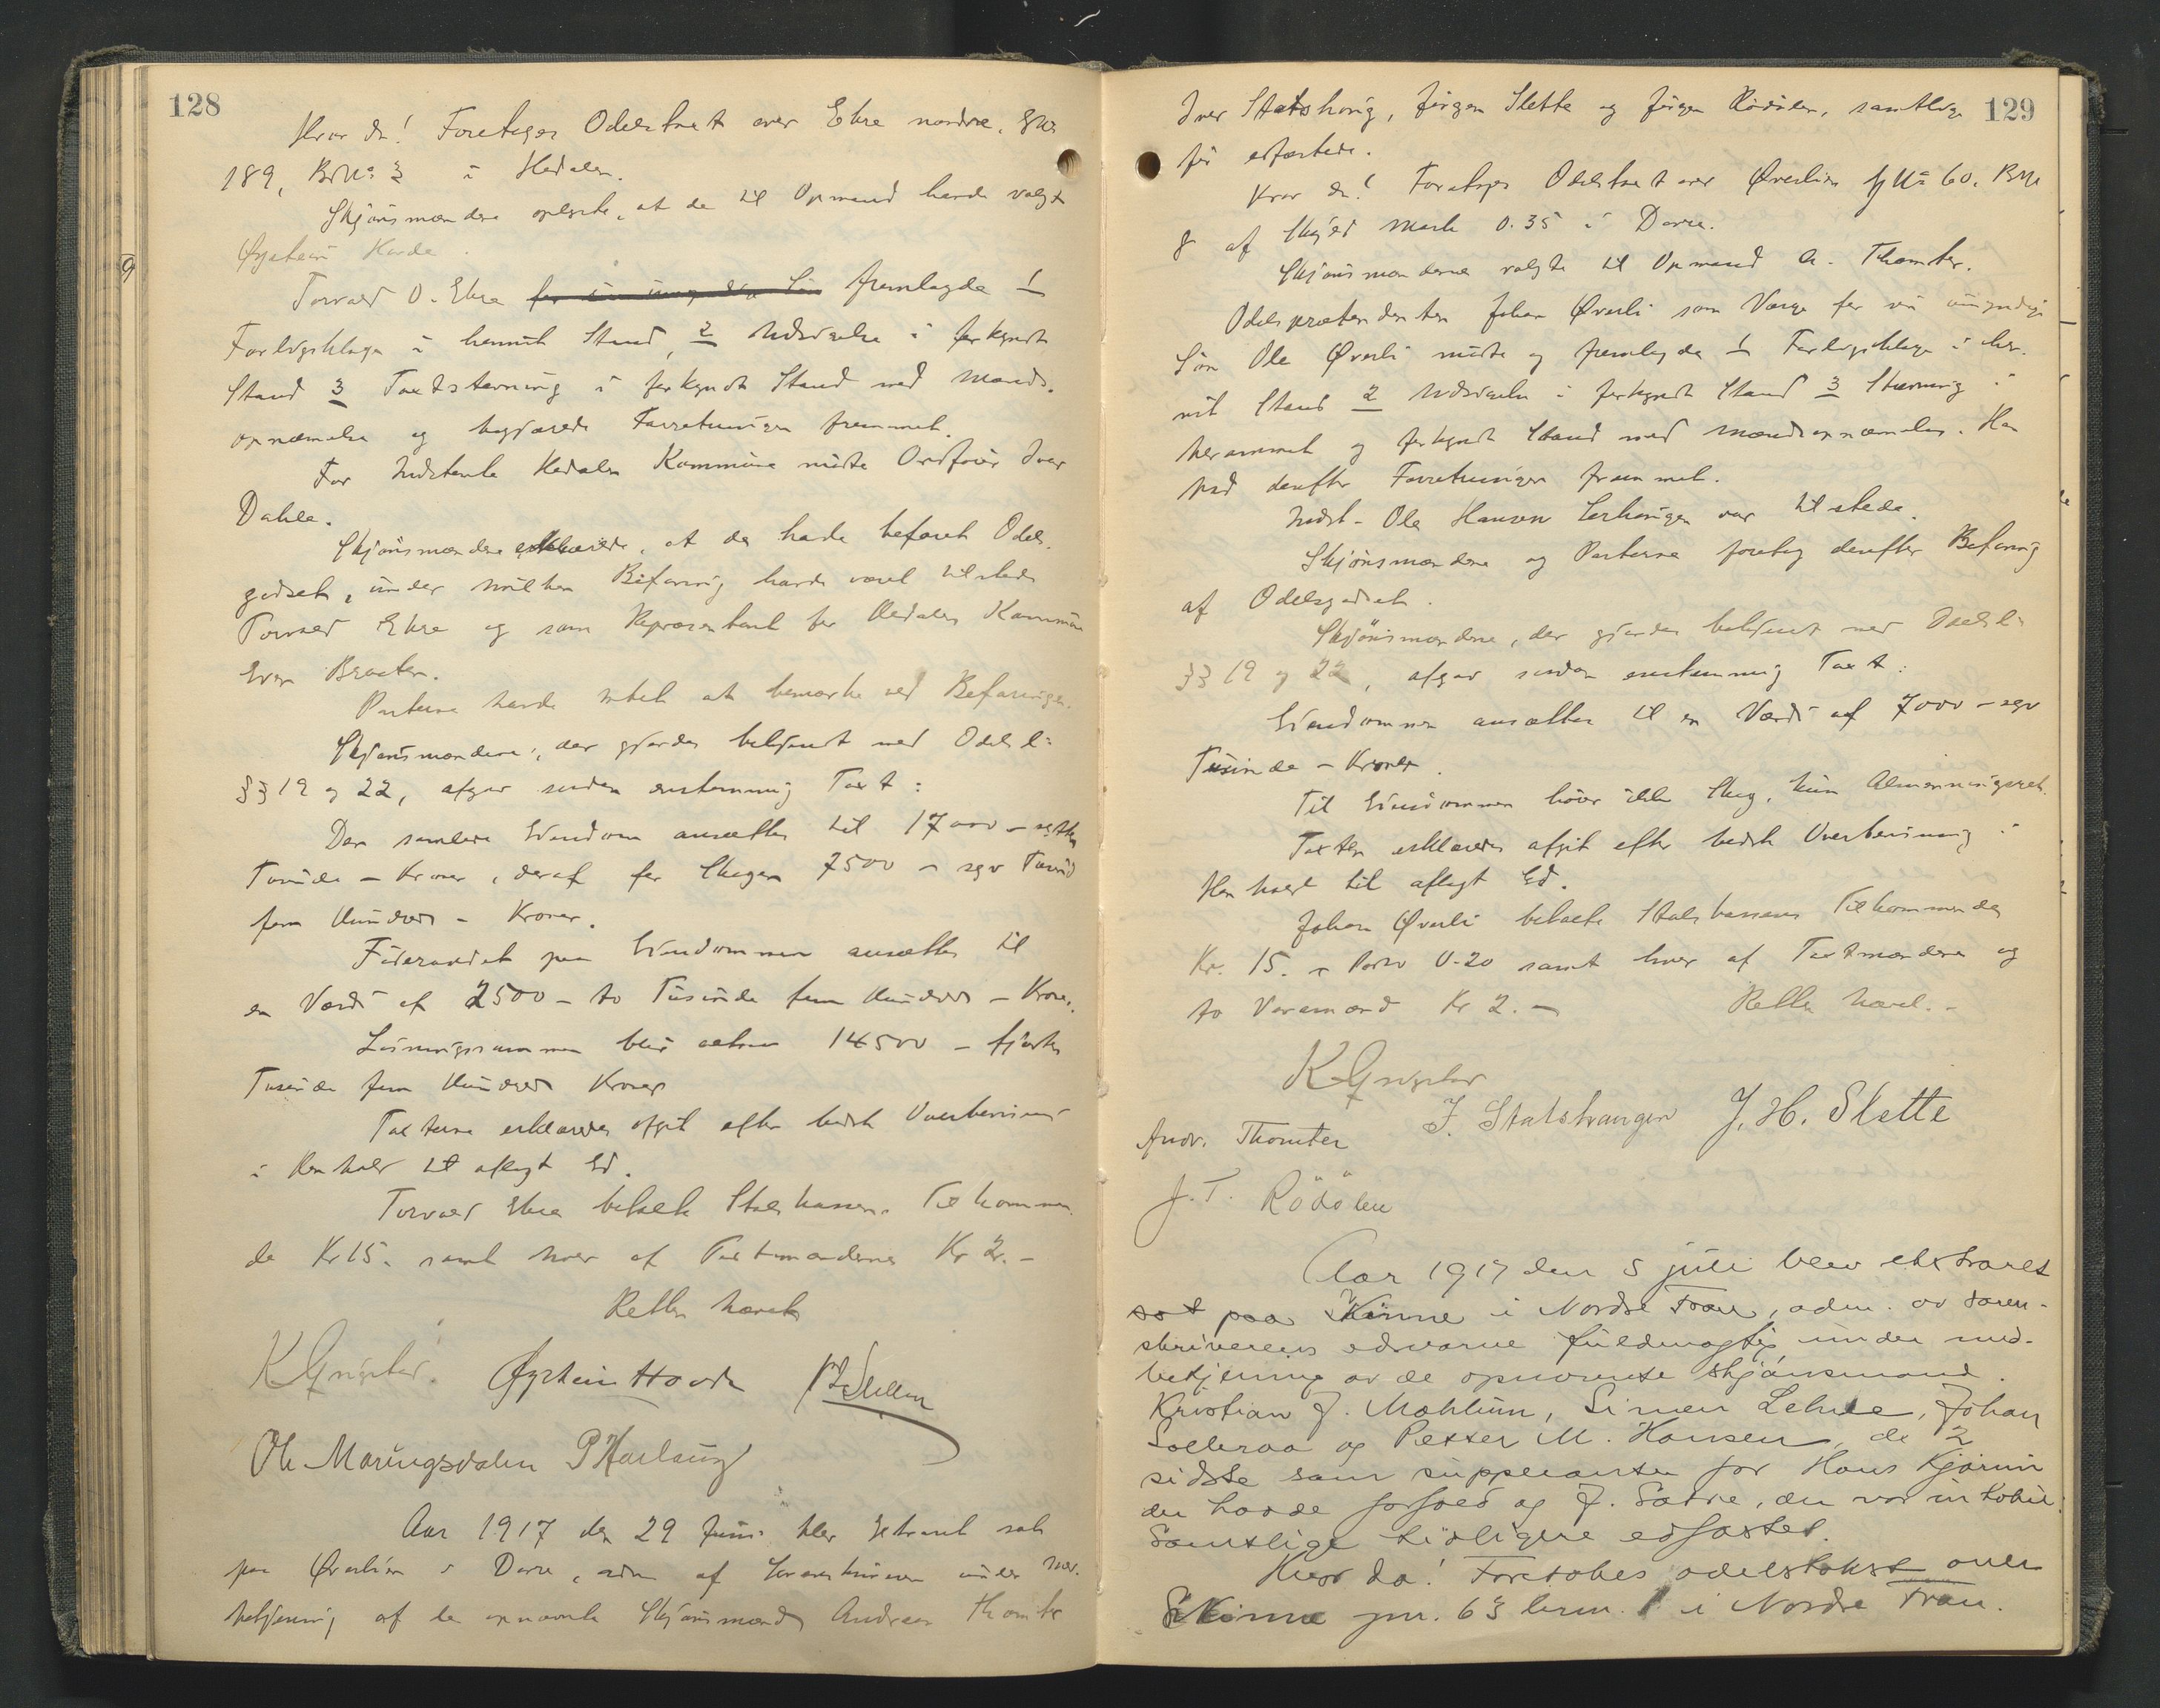 128
Hvor da! Foretoges Odelstaxt over Ekre nordre, GNo
189, BrNo 3 i Hedalen.
Skjønsmændene oplyste, at de til Opmand havde valgt
Øystein Hovde.
Torvald O. Ekre fremlagde 1
Forligsklage i hermit Stand, 2 Udskrift i forkyndt
Stand 3 Taxtstevning i forkyndt Stand med Mands-
opnævnelse og begjærede Forretningen fremmet.
For Indstevnte Hedalen Kommune mødte Ordfører Iver
Dahle.
Skjønsmændene erklærede, at de havde befaret Odels-
godset, under hvilken Befaring havde været tilstede
Torvald Ekre og som Repræsentant for Hedalen Kommune
Even Braaten.
Parterne havde intet at bemærke ved Befaringen.
Skjønsmændene, der gjordes bekjendt med Odelsl:
§§ 19 og 22, afgav sendem enstemmig Taxt:
Den samlede Eiendom ansættes til 17000 - sytten
Tusinde - Kroner, deraf for Skogen 7500 - syv Tusind
fem Hundrede - Kroner.
Føderaadet paa Eiendommen ansættes til
en Værdi af 2500 - to Tusinde fem Hundrede - Kroner.
Løsningssummen blir altsaa 14500 - fjorten
Tusinde fem Hundrede Kroner
Taxterne erklæredes afgit efter bedste Overbevisning
i Henhold til aflagt Ed.
Torvald Ekre betalte Statskassens Tilkommen-
de Kr 15. samt hver af Taxtmændene Kr 2. -
Retten hævet
Øystein Hovde
Ole Maringsdalen P Haslaug
Aar 1917 den 29 Juni blev Extraret sat
paa Øverlien i Dovre, adm af Sorenskriveren under Med-
betjening af de opnævnte Skjønsmænd Andreas Thomter
129
Iver Statshaug, Jørgen Slette og Jørgen Rødølen, samtlige
før edfæstede.
Hvor da! Foretoges Odelstaxt over Øverlien GNo 60, BNo
8 af Skyld Mark 0.35 i Dovre.
Skjønsmændene valgte til Opmand A. Thomter.
Odelsprætendenten Johan Øverli som Værge for sin umyndige
Søn Ole Øverli mødte og fremlagde 1 Forligsklage i her-
mit Stand 2 Udskrift i forkyndt Stand 3 Stevning i
berammet og forkyndt Stand med Mandsopnævnelse. Han
bad derefter Forretningen fremmet.
Indst. Ole Hansen var tilstede.
Skjønsmændene og Parterne foretog derefter Befaring
af Odelsgodset.
Skjønsmændene, der gjordes bekjendt med Odelsl:
§§ 19 og 22, afgav sendem enstemmig Taxt:
Eiendommen ansættes til en Værdi af 7000 - syv
Tusinde - Kroner.
Til Eiendommen hører ikke Skog, kun Almenningsret.
Taxten erklæredes afgit efter bedste Overbevisning i
Henhold til aflagt Ed.
Johan Øverli betalte Statskassens Tilkommende
Kr. 15. + Porto 0.20 samt hver af Taxtmændene og
to Varamænd Kr 2. - Retten hævet. -
Andr. Thomter J. Statshaugen J. H. Slette
J. T. Rödölen
Aar 1917 den 5 juli blev ekstraret
sat paa Kinne i Nordre Fron, adm. av soren-
skriverens edsvorne fuldmægtig under med-
betjening av de opnævnte skjønsmænd.
Kristian J. Mæhlum, Simen Lehne, Johan
Solleraa og Petter M. Hansen, de 2
sidste som suppleanter for Hans Kjørum
der havde forfald og J. Sætre, der var inhabil:
Samtlige tidligere edfæstet.
Hvor da! Foretokes odelstakst over
Kinne gnr. 63 brnr. 1 i Nordre Fron.